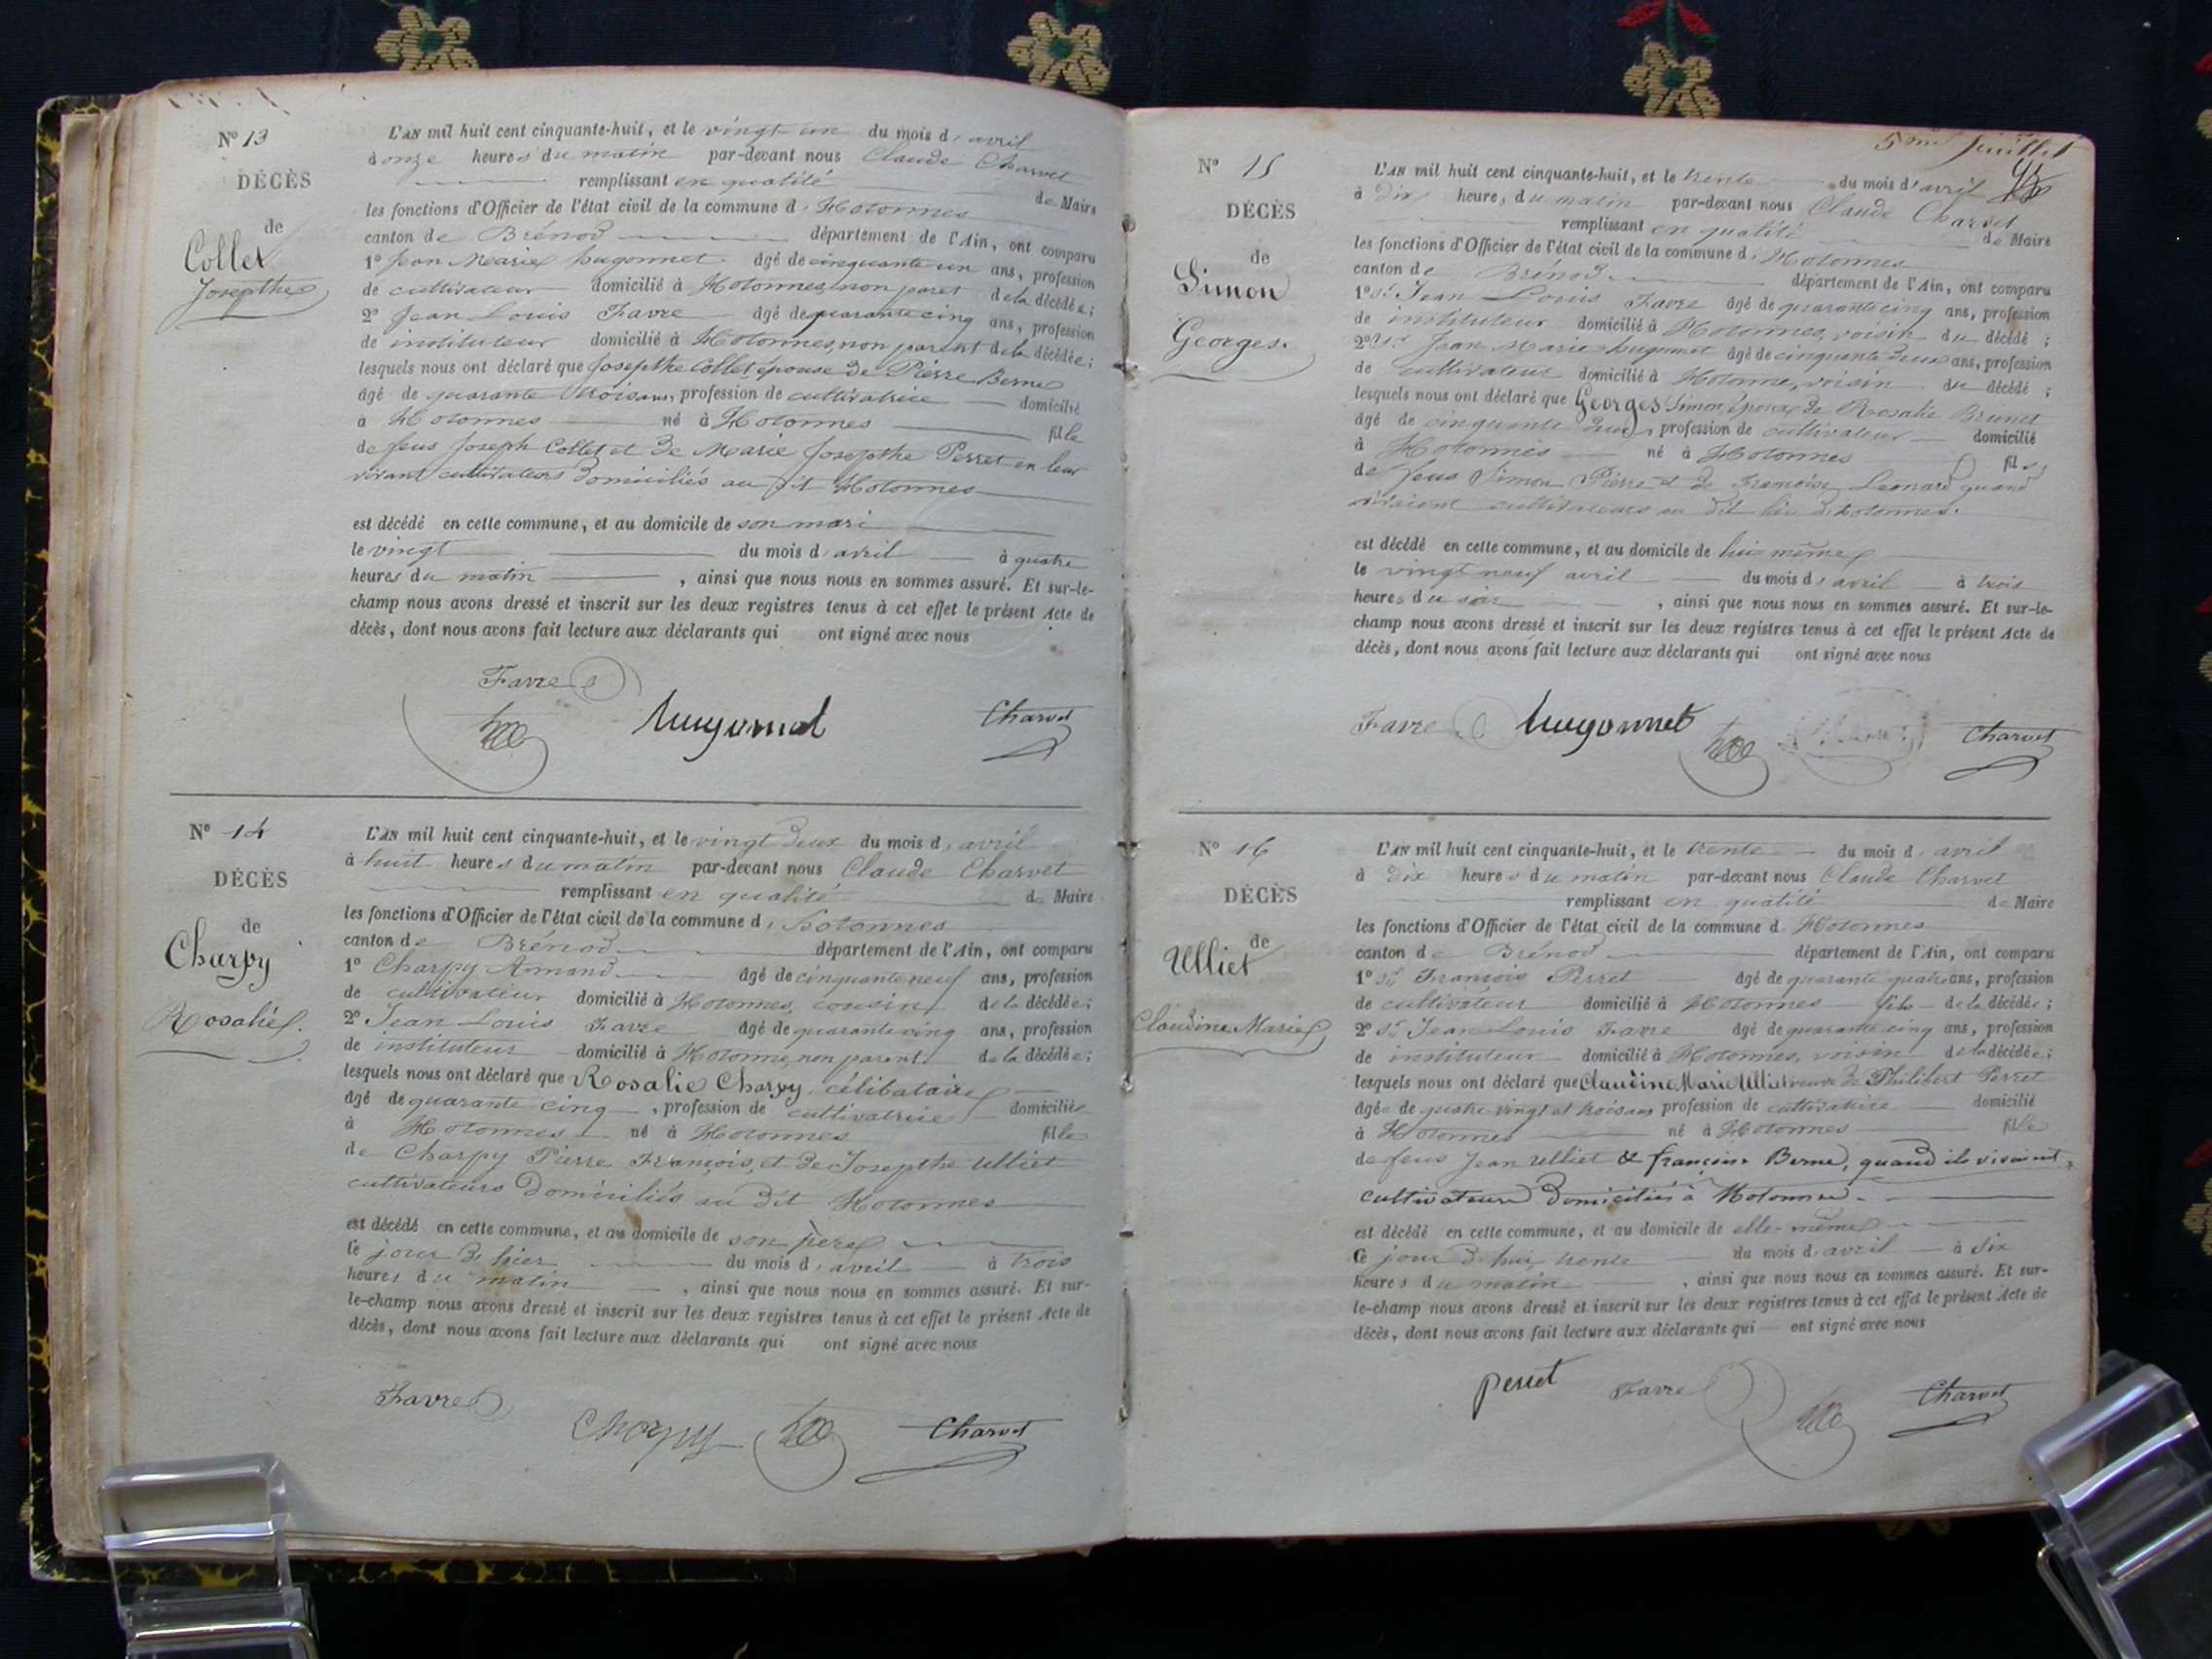 N° 13
DÉCÈS
de
Collet
Josepthe
L'AN mil huit cent cinquante-huit, et le vingt un du mois d'avril
à onze heures du matin par-devant nous Claude Charvet
remplissant en qualité de Maire
les fonctions d'Officier de l'état civil de la commune d'Hotonnes
canton de Brénod département de l'Ain, ont comparu
1° Jean Marie hugonnet âgé de cinquante un ans, profession
de cultivateur domicilié à Hotonnes, non parent de la décédée;
2° Jean Louis Favre âgé de quarante cinq ans, profession
de instituteur domicilié à Hotonnes, non parent de la décédée;
lesquels nous ont déclaré que Josepthe Collet, épouse de Pierre Berne
âgé de quarante trois ans, profession de cultivatrice domicilié
à Hotonnes né à Hotonnes fille
de feus Joseph Collet et de Marie Josepthe Perret en leur
vivant cultivateurs domiciliés au dit Hotonnes
est décédé en cette commune, et au domicile de son mari
le vingt du mois d'avril à quatre
heures du matin, ainsi que nous nous en sommes assuré. Et sur-le-
champ nous avons dressé et inscrit sur les deux registres tenus à cet effet le présent Acte de
décès, dont nous avons fait lecture aux déclarants qui ont signé avec nous
Favre
hugonnet Charvet
N° 14
DÉCÈS
de
Charpy
Rosalie.
L'AN mil huit cent cinquante-huit, et le vingt deux du mois d'avril
à huit heures du matin par-devant nous Claude Charvet
remplissant en qualité de Maire
les fonctions d'Officier de l'état civil de la commune d'hotonnes
canton de Brénod département de l'Ain, ont comparu
1° Charpy Armand âgé de cinquante neuf ans, profession
de cultivateur domicilié à Hotonnes, cousin de la décédée;
2° Jean Louis Favre âgé de quarante cinq ans, profession
de instituteur domicilié à Hotonne, non parent de la décédée;
lesquels nous ont déclaré que Rosalie Charpy, célibataire
âgé de quarante cinq, profession de cultivatrice domiciliée
à Hotonnes né à Hotonnes fille
de Charpy Pierre François, et de Josepthe Ulliet
cultivateurs domiciliés au dit Hotonnes
est décédé en cette commune, et au domicile de son père
le jour d'hier du mois d'avril à trois
heures du matin, ainsi que nous nous en sommes assuré. Et sur-
le-champ nous avons dressé et inscrit sur les deux registres tenus à cet effet le présent Acte de
décès, dont nous avons fait lecture aux déclarants qui ont signé avec nous
Favre
Charpy Charvet
5me feuillet
N° 15
DÉCÈS
de
Simon
Georges.
L'AN mil huit cent cinquante-huit, et le trente du mois d'avril
à dix heures du matin par-devant nous Claude Charvet
remplissant en qualité de Maire
les fonctions d'Officier de l'état civil de la commune d'Hotonnes
canton de Brénod département de l'Ain, ont comparu
1° Sr Jean Louis Favre âgé de quarante cinq ans, profession
de instituteur domicilié à Hotonnes, voisin du décédé;
2° Sr Jean Marie hugonnet âgé de cinquante deux ans, profession
de cultivateur domicilié à Hotonne, voisin du décédé;
lesquels nous ont déclaré que Georges Simon, époux de Rosalie Brunet
âgé de cinquante deux, profession de cultivateur domicilié
à Hotonnes né à Hotonnes fils
de feus Simon Pierre et de Françoise Leonard quand
vivaient cultivateurs au dit lieu d'hotonnes.
est décédé en cette commune, et au domicile de lui-même
le vingt neuf avril du mois d'avril à trois
heures du soir, ainsi que nous nous en sommes assuré. Et sur-le-
champ nous avons dressé et inscrit sur les deux registres tenus à cet effet le présent Acte de
décès, dont nous avons fait lecture aux déclarants qui ont signé avec nous
Favre hugonnet Charvet
N° 16
DÉCÈS
de
Ulliet
Claudine Marie
L'AN mil huit cent cinquante-huit, et le trente du mois d'avril
à dix heures du matin par-devant nous Claude Charvet
remplissant en qualité de Maire
les fonctions d'Officier de l'état civil de la commune d'Hotonnes
canton de Brénod département de l'Ain, ont comparu
1° Sr François Perret âgé de quarante quatre ans, profession
de cultivateur domicilié à Hotonnes fils de la décédée;
2° Sr Jean Louis Favre âgé de quarante cinq ans, profession
de instituteur domicilié à Hotonnes, voisin de la décédée;
lesquels nous ont déclaré que Claudine Marie Ulliet veuve de Philibert Perret
âgée de quatre vingt et trois ans profession de cultivatrice domicilié
à Hotonnes né à Hotonnes fille
de feus Jean Ulliet & françoise Berne, quand ils vivaient,
cultivateurs domiciliés à Hotonnes.
est décédé en cette commune, et au domicile de elle-même
Ce jour d'hui trente du mois d'avril à six
heures du matin, ainsi que nous nous en sommes assuré. Et sur-
le-champ nous avons dressé et inscrit sur les deux registres tenus à cet effet le présent Acte de
décès, dont nous avons fait lecture aux déclarants qui ont signé avec nous
perret Favre Charvet